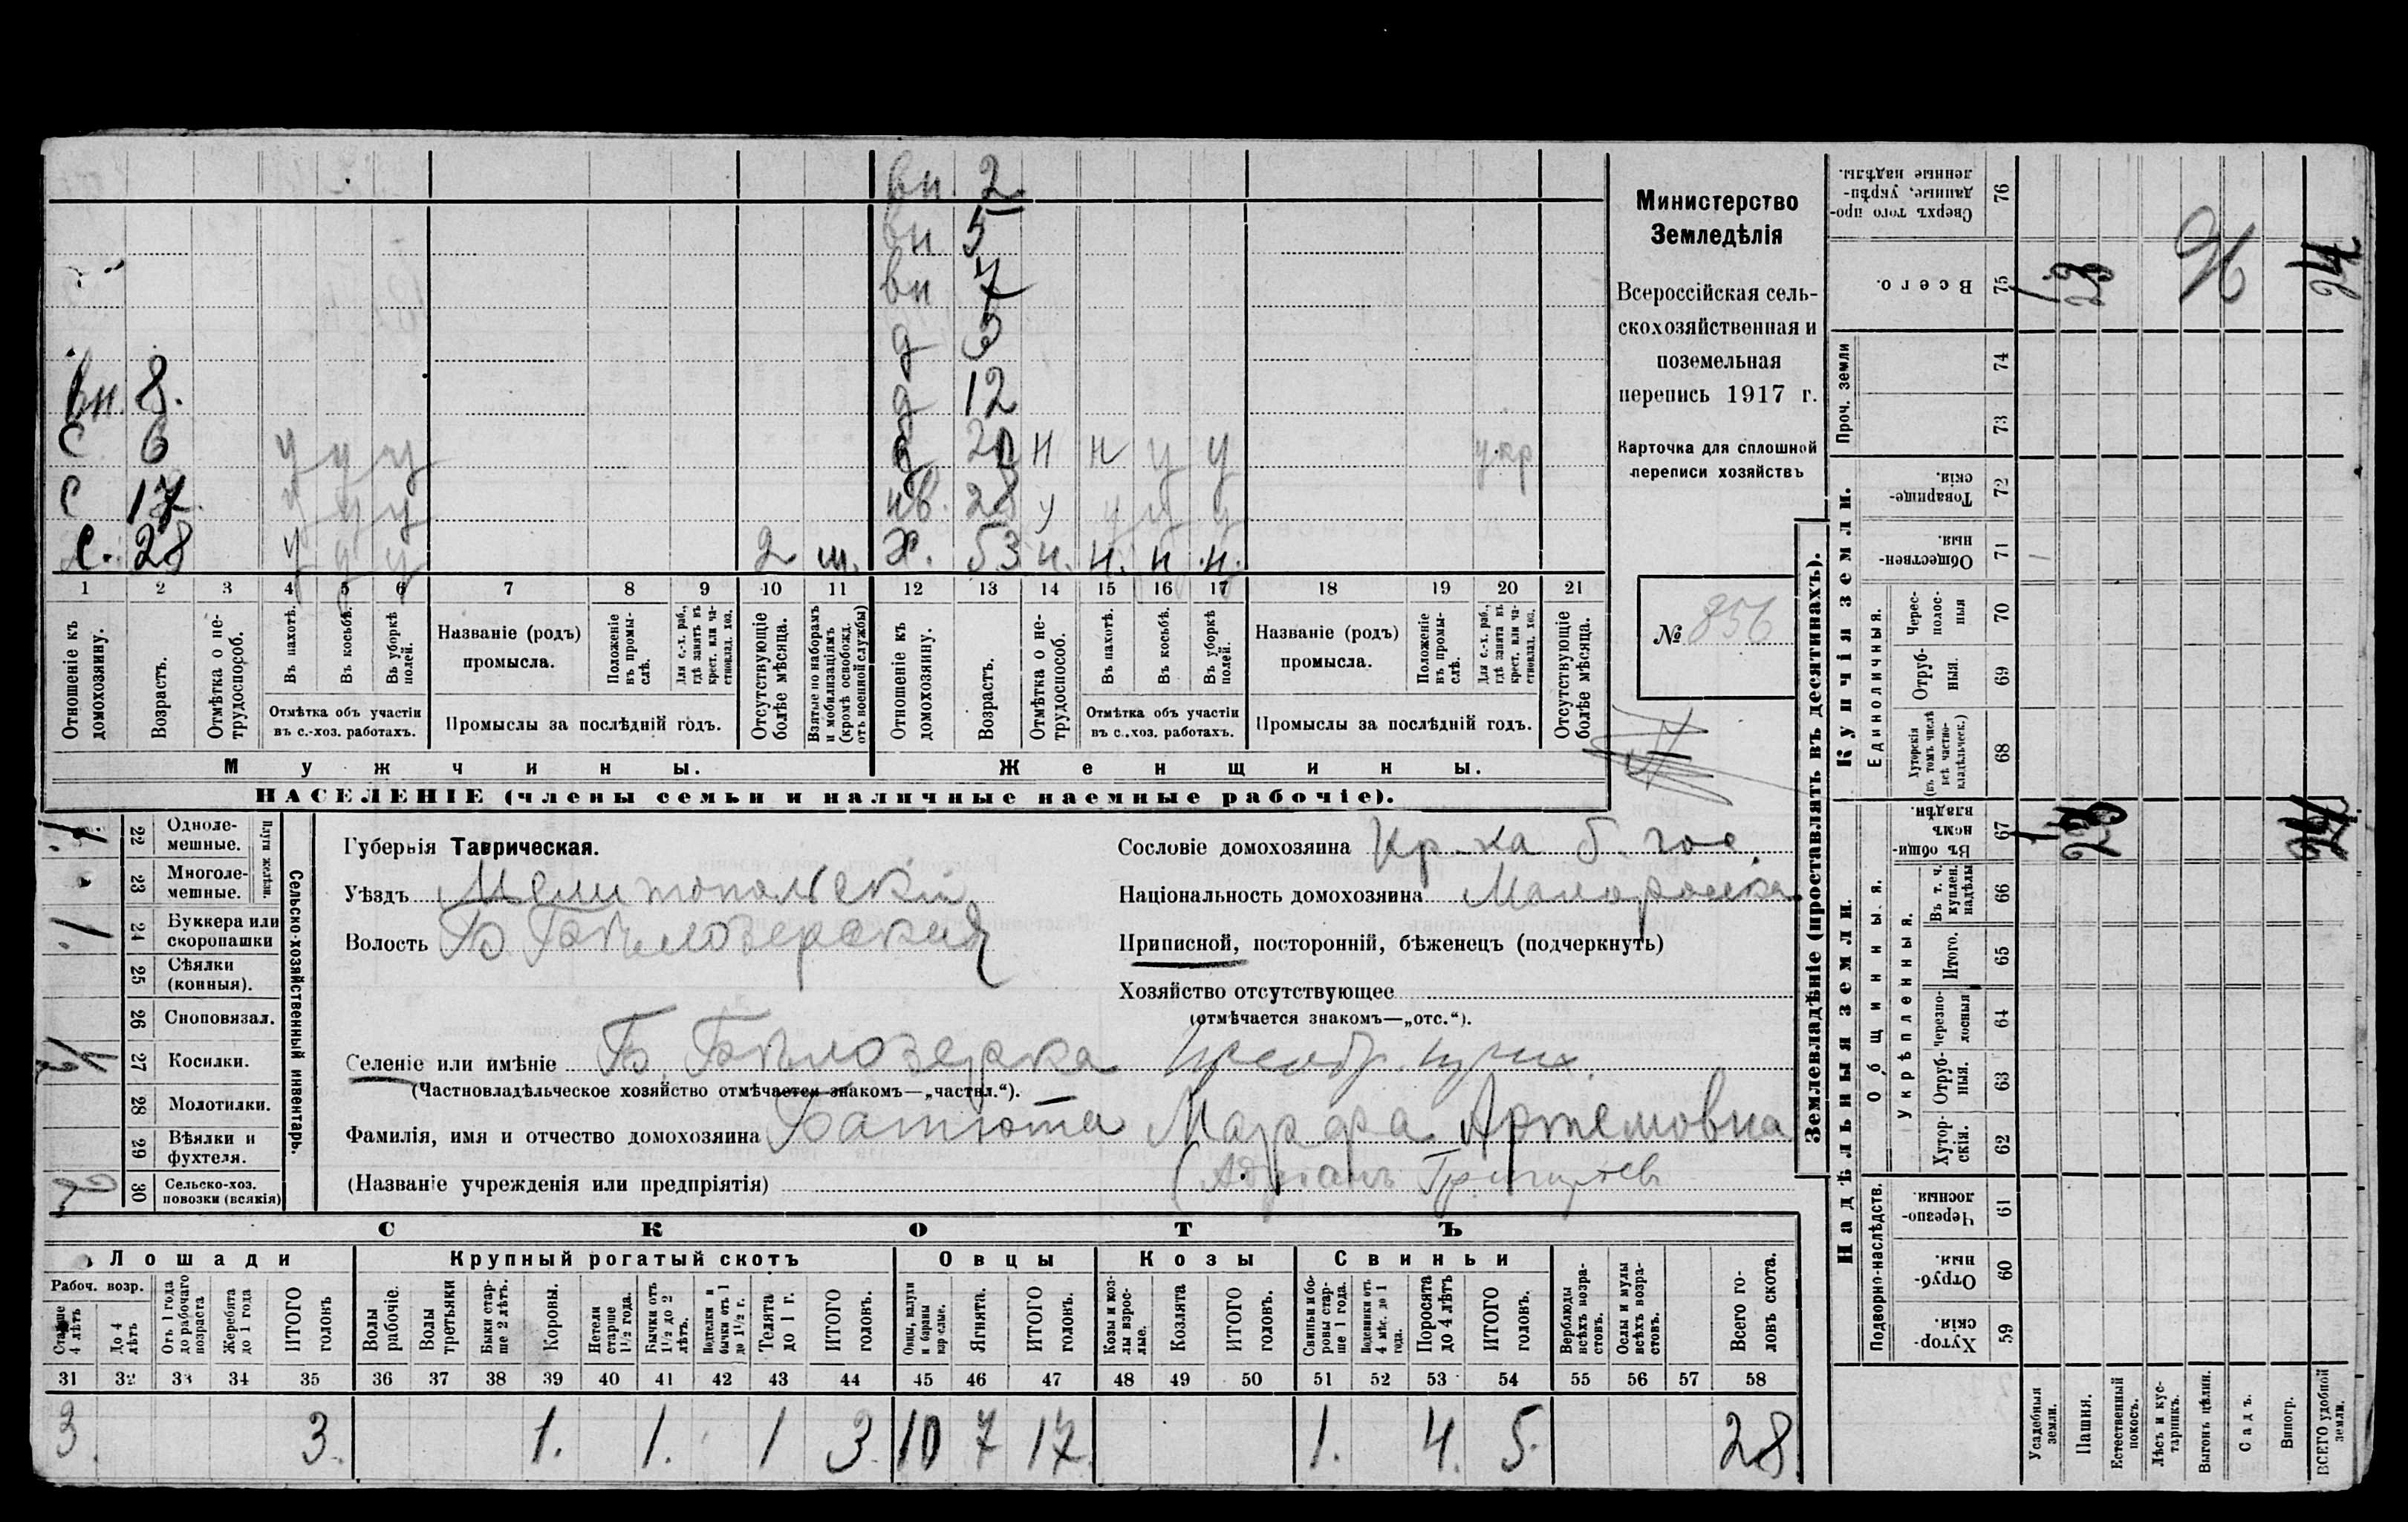 вн. 2
вн 5
вн 7
д
вн. 8. д 12
С 6 у у у д н н у у укр
С 17. у у у нв. 28 у у у у
С. 28 у у у 2 ш. х. 53 н. н. н н.
1 2 3 4 5 6 7 8 9 10 11 12 13 14 15 16 17 18 19 20 21
Отношеніе къ домохозяину.
Возрастъ.
Отмѣтка о не-трудоспособ.
Въ пахотѣ.
Въ косьбѣ.
Въ уборкѣ полей.
Отмѣтка объ участіи
въ с.-хоз. работахъ.
Названіе (родъ)
промысла.
Положеніе въ промы-слѣ.
Для с.-х. раб., гдѣ занятъ въ крест. или ча-стновлад. хоз.
Промыслы за послѣдній годъ.
Отсутствующіе болѣе мѣсяца.
Взятые по наборамъ и мобилизаціямъ (кромѣ освобожд. отъ военной службы)
Отношеніе къ домохозяину.
Возрастъ.
Отмѣтка о не-трудоспособ.
Въ пахотѣ.
Въ косьбѣ.
Въ уборкѣ полей.
Отмѣтка объ участіи
въ с.-хоз. работахъ.
Названіе (родъ)
промысла.
Положеніе въ промы-слѣ.
Для с.-х. раб., гдѣ занята въ крест. или ча-стновлад. хоз.
Промыслы за послѣдній годъ.
Отсутствующіе болѣе мѣсяца.
Мужчины.
Женщины.
НАСЕЛЕНІЕ (члены семьи и наличные наемные рабочіе).
Министерство
Земледѣлія
Всероссійская сель-
скохозяйственная и
поземельная
перепись 1917 г.
Карточка для сплошной
переписи хозяйствъ
№ 856
Сельско-хозяйственный инвентарь.
Плуги желѣзн.
1 22 Одноле-мешные.
23 Многоле-мешные.
1 24 Буккера или скоропашки
25 Сѣялки (конныя).
26 Сноповязал.
27 Косилки.
28 Молотилки.
29 Вѣялки и фухтеля.
30 Сельско-хоз. повозки (всякія)
Губернія Таврическая.
Уѣздъ Мелитопольскій
Волость Б. Бѣлозерская
Селеніе или имѣніе Б. Бѣлозерка
(Частновладѣльческое хозяйство отмѣчается знакомъ—„частвл.“).
Фамилія, имя и отчество домохозяина Батюта Марфа Артемовна
(Названіе учрежденія или предпріятія) (Адріанъ Григорьев
Сословіе домохозяина Кр-ка б. гос.
Національность домохозяина Малоросска
Приписной, посторонній, бѣженецъ (подчеркнуть)
Хозяйство отсутствующее
(отмѣчается знакомъ—„отс.“).
СКОТЪ
Лошади Крупный рогатый скотъ Овцы Козы Свиньи
Рабоч. возр.
Старше 4 лѣтъ
До 4 лѣтъ
Отъ 1 года до рабочаго возраста
Жеребята до 1 года
ИТОГО головъ
Волы рабочіе.
Волы третьяки
Быки стар-ше 2 лѣтъ.
Коровы.
Нетели старше 1½ года.
Бычки отъ 1½ до 2 лѣтъ.
Подтелки и бычки отъ 1 до 1½ г.
Телята до 1 г.
ИТОГО головъ.
Овцы, валухи и бараны взрослые.
Ягнята.
ИТОГО головъ.
Козы и коз-лы взрос-лые.
Козлята
ИТОГО головъ.
Свиньи и бо-ровы стар-ше 1 года.
Подсвинки отъ 4 мѣс. до 1 года.
Поросята до 4 лѣтъ
ИТОГО головъ.
Верблюды всѣхъ возра-стовъ.
Ослы и мулы всѣхъ возра-стовъ.
Всего го-ловъ скота.
31 32 33 34 35 36 37 38 39 40 41 42 43 44 45 46 47 48 49 50 51 52 53 54 55 56 57 58
3. 3. 1. 1. 1 3. 10 7 17. 1. 4. 5. 28.
Землевладѣніе (проставлять въ десятинахъ).
Надѣльныя земли.
Купчія земли.
Проч. земли
Подворно-наслѣдств.
Общинныя.
Укрѣпленныя.
Единоличныя.
Сверхъ того про-данные, укрѣп-ленные надѣлы. 76
Всего. 75
74
73
Товарище-скія. 72
Обществен-ныя. 71
Черес-полос-ныя 70
Отруб-ныя. 69
Хуторскія (въ томъ числѣ всѣ частно-владѣльческ.) 68
Въ общи-нномъ владѣн. 67
Въ т. ч. куплен. надѣлы 66
Итого. 65
Черезпо-лосныя 64
Отруб-ныя. 63
Хутор-скія. 62
Черезпо-лосныя. 61
Отруб-ныя. 60
Хутор-скія. 59
Усадебныя земли.
Пашня.
Естественный покосъ.
Лѣсъ и кус-тарникъ.
Выгонъ цѣлин.
Садъ.
Виногр.
ВСЕГО удобной земли.